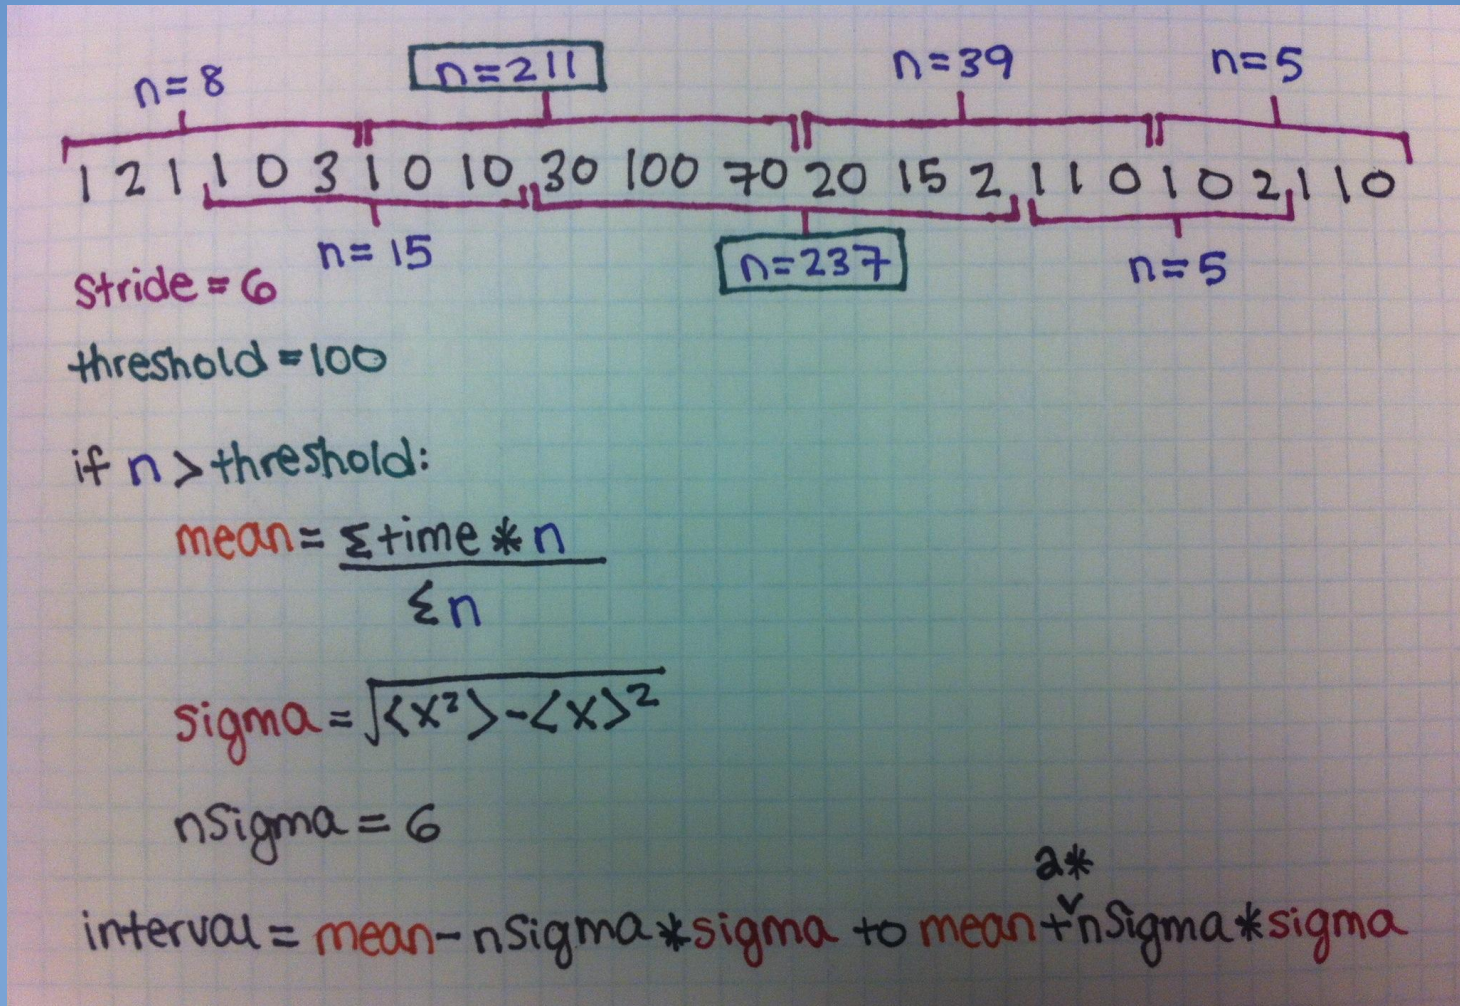 n=8 n=211 n=39 n=5
1 2 1 1 0 3 1 0 10 30 100 70 20 15 2 1 1 0 1 0 2 1 1 0
n=15 n=237 n=5
stride=6
threshold=100
if n>threshold:
mean= Σtime*n
Σn
sigma=√⟨x²⟩-⟨x⟩²
nSigma=6
a*
interval= mean-nSigma*sigma to mean+nSigma*sigma